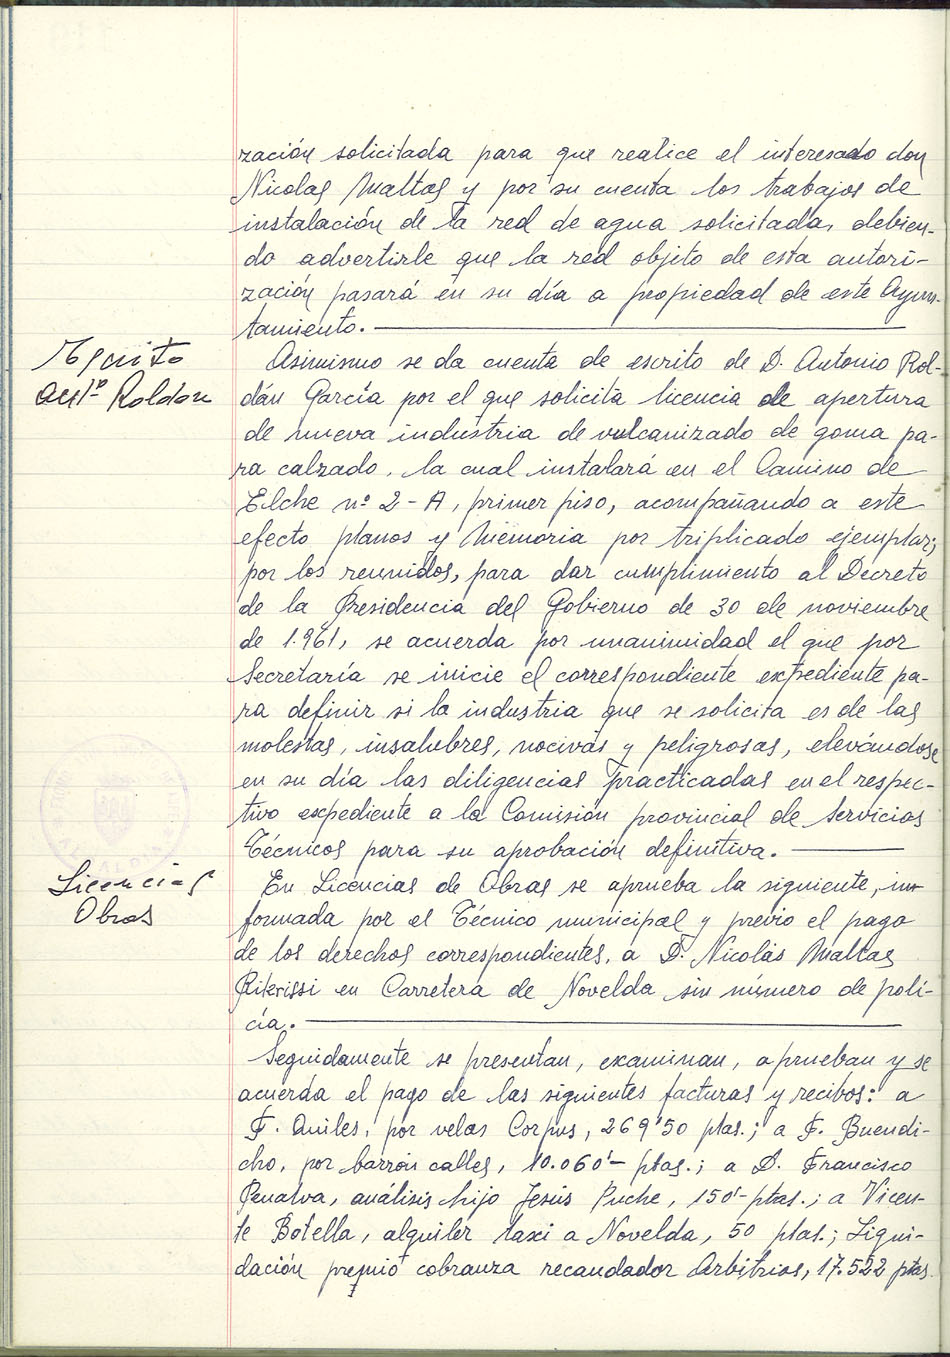 zación solicitada para que realice el interesado don
Nicolas Maltas y por su cuenta los trabajos de
instalación de la red de agua solicitada, debien-
do advertirle que la red objeto de esta autori-
zación pasará en su día a propiedad de este Ayun-
tamiento.
Escrito
Antº Roldán
Asimismo se da cuenta de escrito de D. Antonio Rol-
dán García por el que solicita licencia de apertura
de nueva industria de vulcanizado de goma pa-
ra calzado, la cual instalará en el Camino de
Elche nº 2-A, primer piso, acompañando a este
efecto planos y Memoria por triplicado ejemplar;
por los reunidos, para dar cumplimiento al Decreto
de la Presidencia del Gobierno de 30 de noviembre
de 1.961, se acuerda por unanimidad el que por
Secretaría se inicie el correspondiente expediente pa-
ra definir si la industria que se solicita es de las
molestas, insalubres, nocivas y peligrosas, elevándose
en su día las diligencias practicadas en el respec-
tivo expediente a la Comisión provincial de Servicios
Técnicos para su aprobación definitiva.
Licencias
Obras
En Licencias de Obras se aprueba la siguiente, in-
formada por el Técnico municipal y previo el pago
de los derechos correspondientes, a D. Nicolás Maltas
en Carretera de Novelda sin número de poli-
cía.
Seguidamente se presentan, examinan, aprueban y se
acuerda el pago de las siguientes facturas y recibos: a
F. Quiles, por velas Corpus, 269'50 ptas.; a F. Buendi-
cho, por barrón calles, 10.060'- ptas.; a D. Francisco
Penalva, análisis hijo Jesús Puche, 150'- ptas.; a Vicen-
te Botella, alquiler taxi a Novelda, 50 ptas.; Liqui-
dación premio cobranza recaudador Arbitrios, 17.522 ptas.